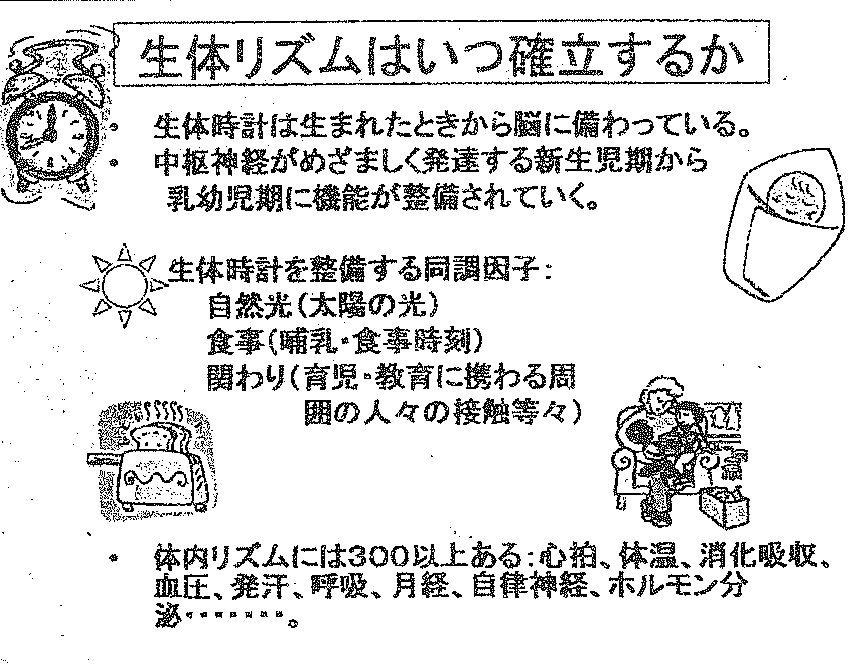 生体リズムはいつ確立するか
・ 生体時計は生まれたときから脳に備わっている。
・ 中枢神経がめざましく発達する新生児期から
乳幼児期に機能が整備されていく。
生体時計を整備する同調因子：
自然光（太陽の光）
食事（哺乳・食事時刻）
関わり（育児・教育に携わる周
囲の人々の接触等々）
・ 体内リズムには300以上ある：心拍、体温、消化吸収、
血圧、発汗、呼吸、月経、自律神経、ホルモン分
泌・・・・・・・。